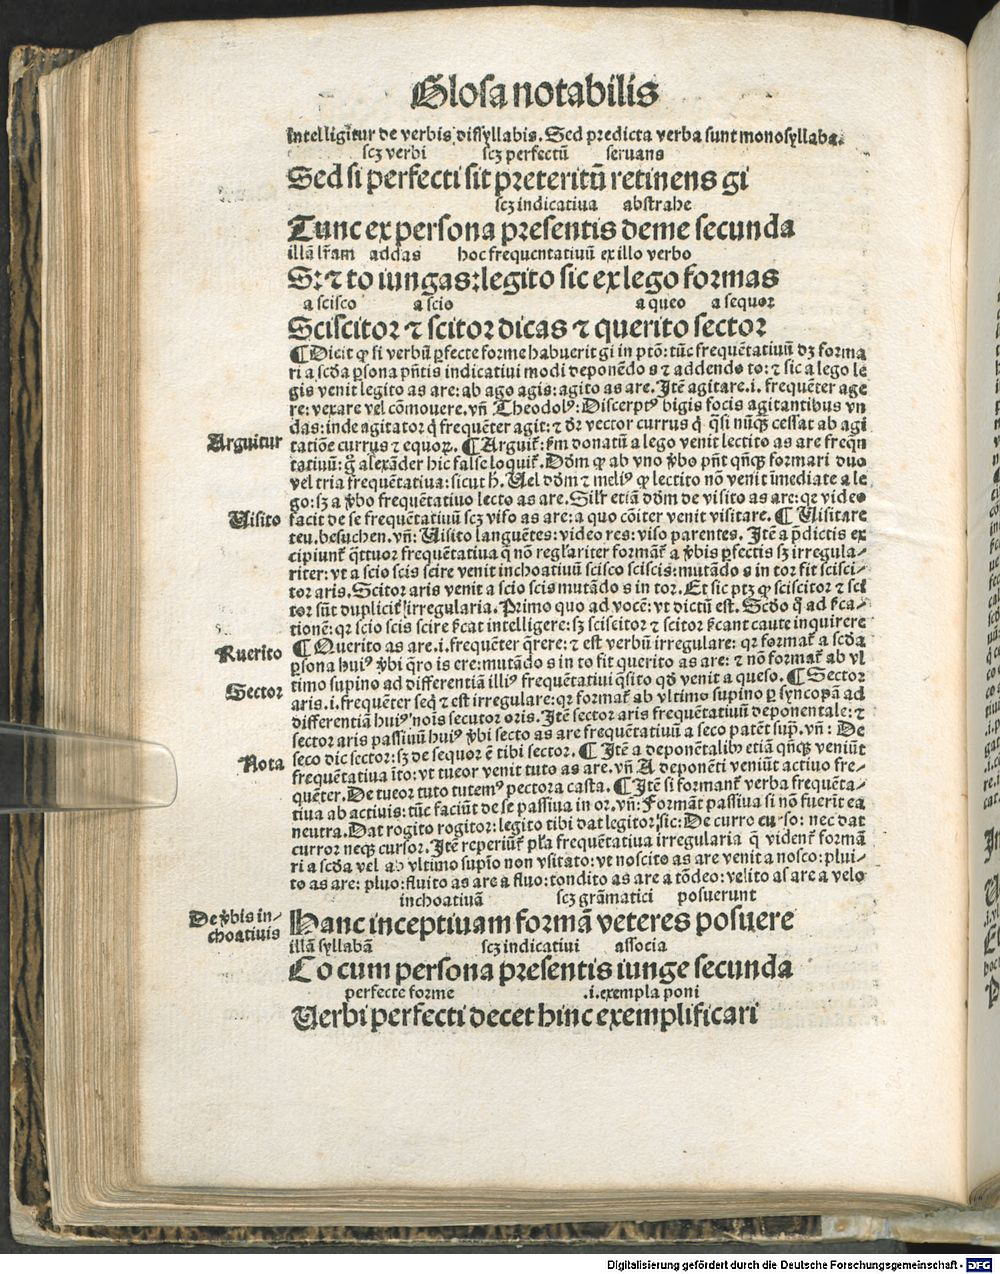 Glosa notabilis
Intelligitur de verbis dissyllabis. Sed predicta verba sunt monosyllaba.
scꝫ verbi scꝫ perfectū seruans
Sed si perfecti sit preteritū retinens gi
scꝫ indicatiua abstrahe
Tunc ex persona presentis deme secunda
illā lr̄am addas hoc frequentatiuū ex illo verbo
S: ⁊ to iungas: legito sic ex lego formas
a scisco a scio a queo a sequor
Sciscitor ⁊ scitor dicas ⁊ querito sector
¶ Dicit ꝙ si verbū ꝑfecte forme habuerit gi in p̄tō: tūc frequētatiuū dꝫ forma
ri a scd́a ꝑsona pn̄tis indicatiui modi deponēdo s ⁊ addendo to: ⁊ sic a lego le
gis venit legito as are: ab ago agis: agito as are. Itē agitare .i. frequēter age
re: vexare vel cōmouere. vn̄ Theodolꝰ: Discerptꝰ bigis focis agitantibus vn
das: inde agitator q̇ frequēter agit: ⁊ dr̄ vector currus q̇ q̄si nūqꝫ cessat ab agi
Arguitur tatiōe currus ⁊ equoꝝ. ¶ Arguit᷑: ꝑm donatū a lego venit lectito as are freqn̄
tatiuū: g̊ alexāder hic false loquit᷑. Dōm ꝙ ab vno v̄bo pn̄t qn̄qꝫ formari duo
vel tria frequētatiua: sicut h̄. Uel dōm ⁊ meliꝰ ꝙ lectito nō venit īmediate a le
go: sꝫ a v̄bo frequētatiuo lecto as are. Silr̄ etiā dōm de visito as are: qꝛ video
Uisito facit de se frequētatiuū scꝫ viso as are: a quo cōiter venit visitare. ¶ Uisitare
teu. besuchen. vn̄: Uisito languētes: video res: viso parentes. Itē a p̄dictis ex
cipiunt᷑ q̄ttuor frequētatiua q̄ nō regl̄ariter formāt᷑ a v̄bis ꝑfectis sꝫ irregula-
riter: vt a scio scis scire venit inchoatiuū scisco sciscis: mutādo s in tor fit scisci-
tor aris. Scitor aris venit a scio scis mutādo s in tor. Et sic ptꝫ ꝙ sciscitor ⁊ sci
tor sūt duplicit᷑ irregularia. Primo quo ad vocē: vt dictū est. Scd́o q̊ ad ſ̄ca-
tionē: qꝛ scio scis scire ſ̄cat intelligere: sꝫ sciscitor ⁊ scitor ſ̄cant caute inquirere
Ruerito ¶ Querito as are .i. frequēter q̄rere: ⁊ est verbū irregulare: qꝛ format᷑ a scd́a
ꝑsona huiꝰ v̄bi q̄ro is ere: mutādo s in to fit querito as are: ⁊ nō format᷑ ab vl
timo supino ad differentiā illiꝰ frequētatiui q̄sito qd̄ venit a queso. ¶ Sector
Sector aris .i. frequēter seq̇ ⁊ est irregulare: qꝛ format᷑ ab vltimo supino ꝑ syncopā ad
differentiā huiꝰ nois secutor oris. Itē sector aris frequētatiuū deponentale: ⁊
sector aris passiuū huiꝰ v̄bi secto as are frequētatiuū a seco patēt sup̄. vn̄: De
seco dic sector: sꝫ de sequor ē tibi sector. ¶ Itē a deponētalibꝰ etiā qn̄qꝫ veniūt
Nota frequētatiua ito: vt tueor venit tuto as are. vn̄ A deponēti veniūt actiuo fre-
quēter. De tueor tuto tutemꝰ pectora casta. ¶ Itē si formant᷑ verba frequēta-
tiua ab actiuis: tūc faciūt de se passiua in or. vn̄: Formāt passiua si nō fuerit ea
neutra. Dat rogito rogitor: legito tibi dat legitor sic: De curro curso: nec dat
curror neqꝫ cursor. Itē reperiūt᷑ pl̄a frequētatiua irregularia q̄ vident᷑ formā
ri a scd́a vel ab vltimo supīo non vsitato: vt noscito as are venit a nosco: plui-
to as are: pluo: fluito as are a fluo: tondito as are a tōdeo: velito as are a velo
inchoatiuā scꝫ grāmatici posuerunt
De v̄bis in-
choatiuis
Hanc inceptiuam formā veteres posuere
illā syllabā scꝫ indicatiui associa
Co cum persona presentis iunge secunda
perfecte forme .i. exempla poni
Uerbi perfecti decet hinc exemplificari
Digitalisierung gefördert durch die Deutsche Forschungsgemeinschaft - DFG